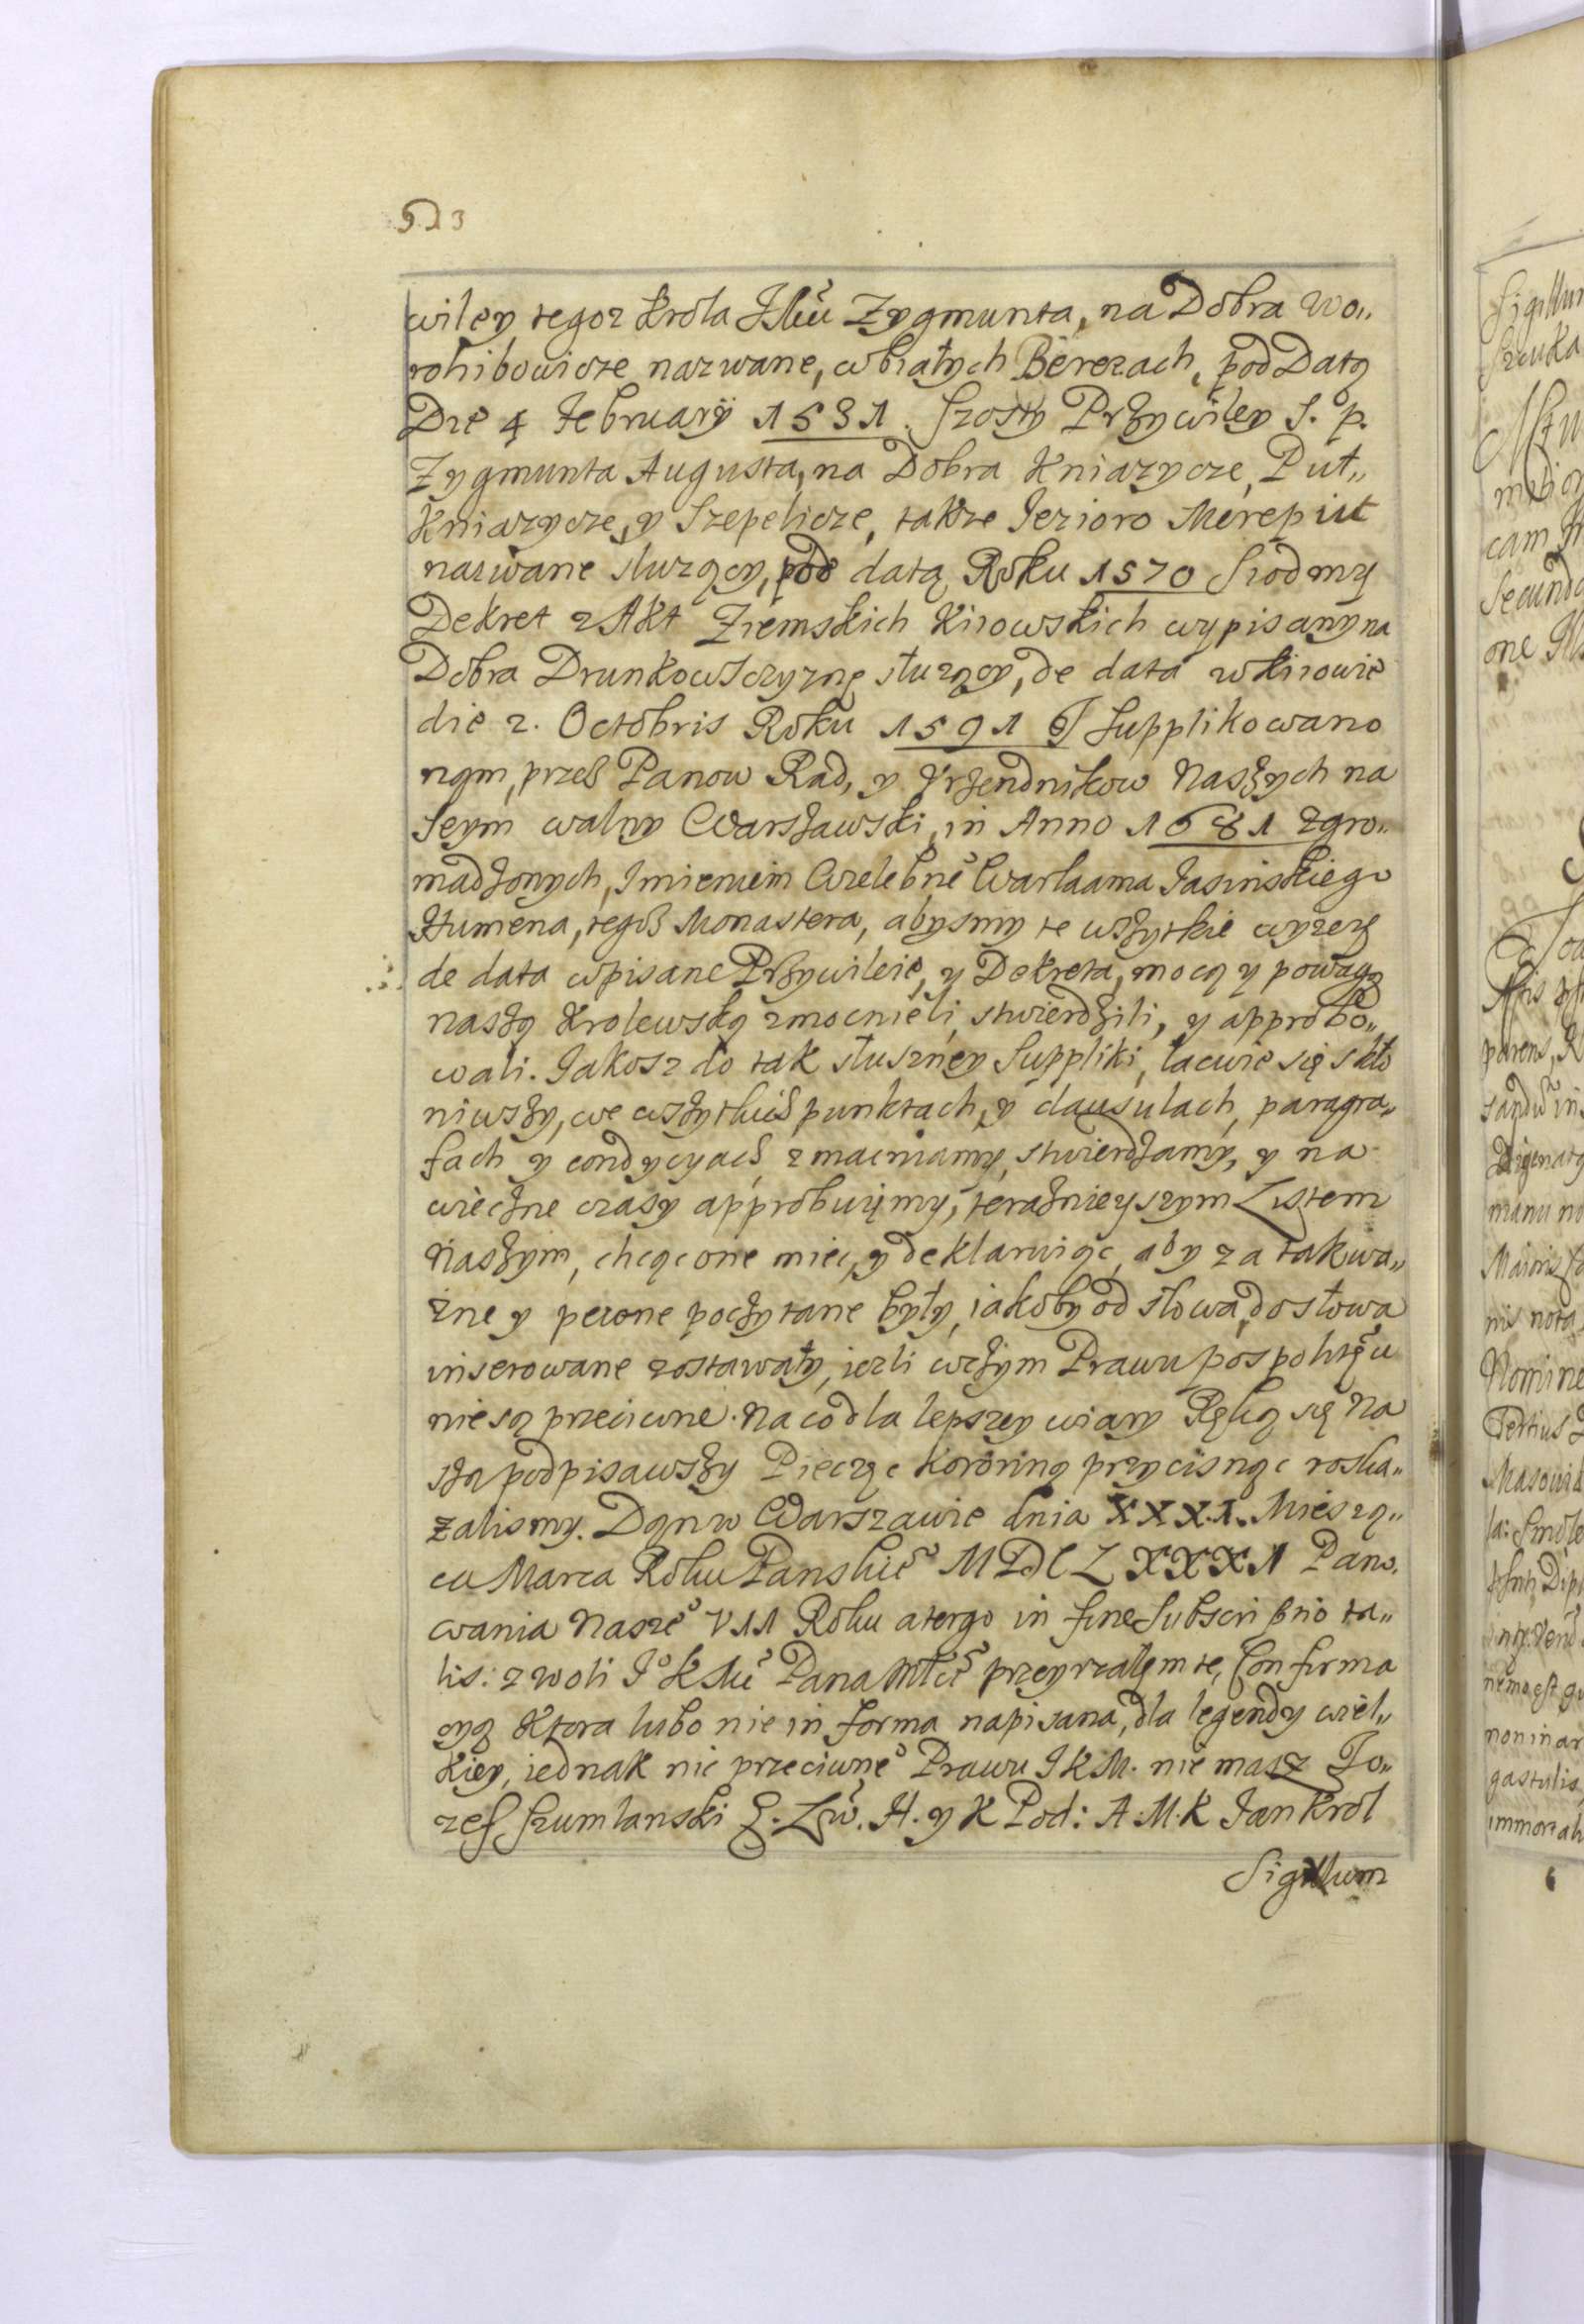 513
wiley tegoz Krola JMci Zygmunta, na Dobra Wo„
rohibowicze nazwane, w białych Berezach, pod Datą
Die 4 February 1531. Szosty Przywiley S. p.
Zygmunta Augusta, na Dobra Kniazycze, Put„
Kniazycze, y Szepelicze, takze Jezioro Merepiut
nazwane sluzący, pod datą Roku 1570 Siodmy
Dekret z Akt Ziemskich Kiiowskich wypisany na
Dobra Drunkowszczyznę służący, de data w Kiiowie
die 2. Octobris Roku 1591 I Supplikowano
nąm, przeз Panow Rad, y Urzendnikow Naszych na
Seym walny Warszawski, in Anno 1681 zgro„
madzonych, Imieniem Wielebne° Warlaama Jasinskiego
Humena, tegoз Monastera, abysmy te wszytkie wyzey
de data wpisane Przywileie, y Dekreta, mocą y powagą
naszą Krolewską zmocnieli, stwierdzili, y approbo„
wali. Jakosz do tak słuszney Suppliki, łacwie się skło
niwszy, we wszytkich punktach, y clausulach, paragra„
fach y condycyach zmacniamy, stwierdzamy, y na
wieczne czasy approbuięmy, terazniejszym Listem
Naszym, chcąc one miec, y deklaruiąc, aby za tak wa„
zne y pewne poczytane były, iakoby od słowa, do słowa
inserowane zostawały, iezli wczym Prawu pospolitęu
nie są przeciwne. Na co dla lepszey wiary Ręką się Na
szą podpisawszy Pieczęc Koronną przycisnąc roska„
zalismy. Dąn w Warszawie dnia XXX.1. Miesią„
ca Marca Roku Panskie° MDCLXXX1 Pano.
wania Nasze° V11 Roku a tergo in fine Subscriptio ta„
lis: z woli J° K Mci Pana Młci° przeyrzałem te, Confirma
cyą Ktora lubo nie in forma napisana, dla legendy wiel„
kiey, iednak nic przeciwne° Prawu J K M. nie masz Jo„
zef Szumlanski E. Lw. H. y K Pod: A. M. K Jan Krol
Sigillum